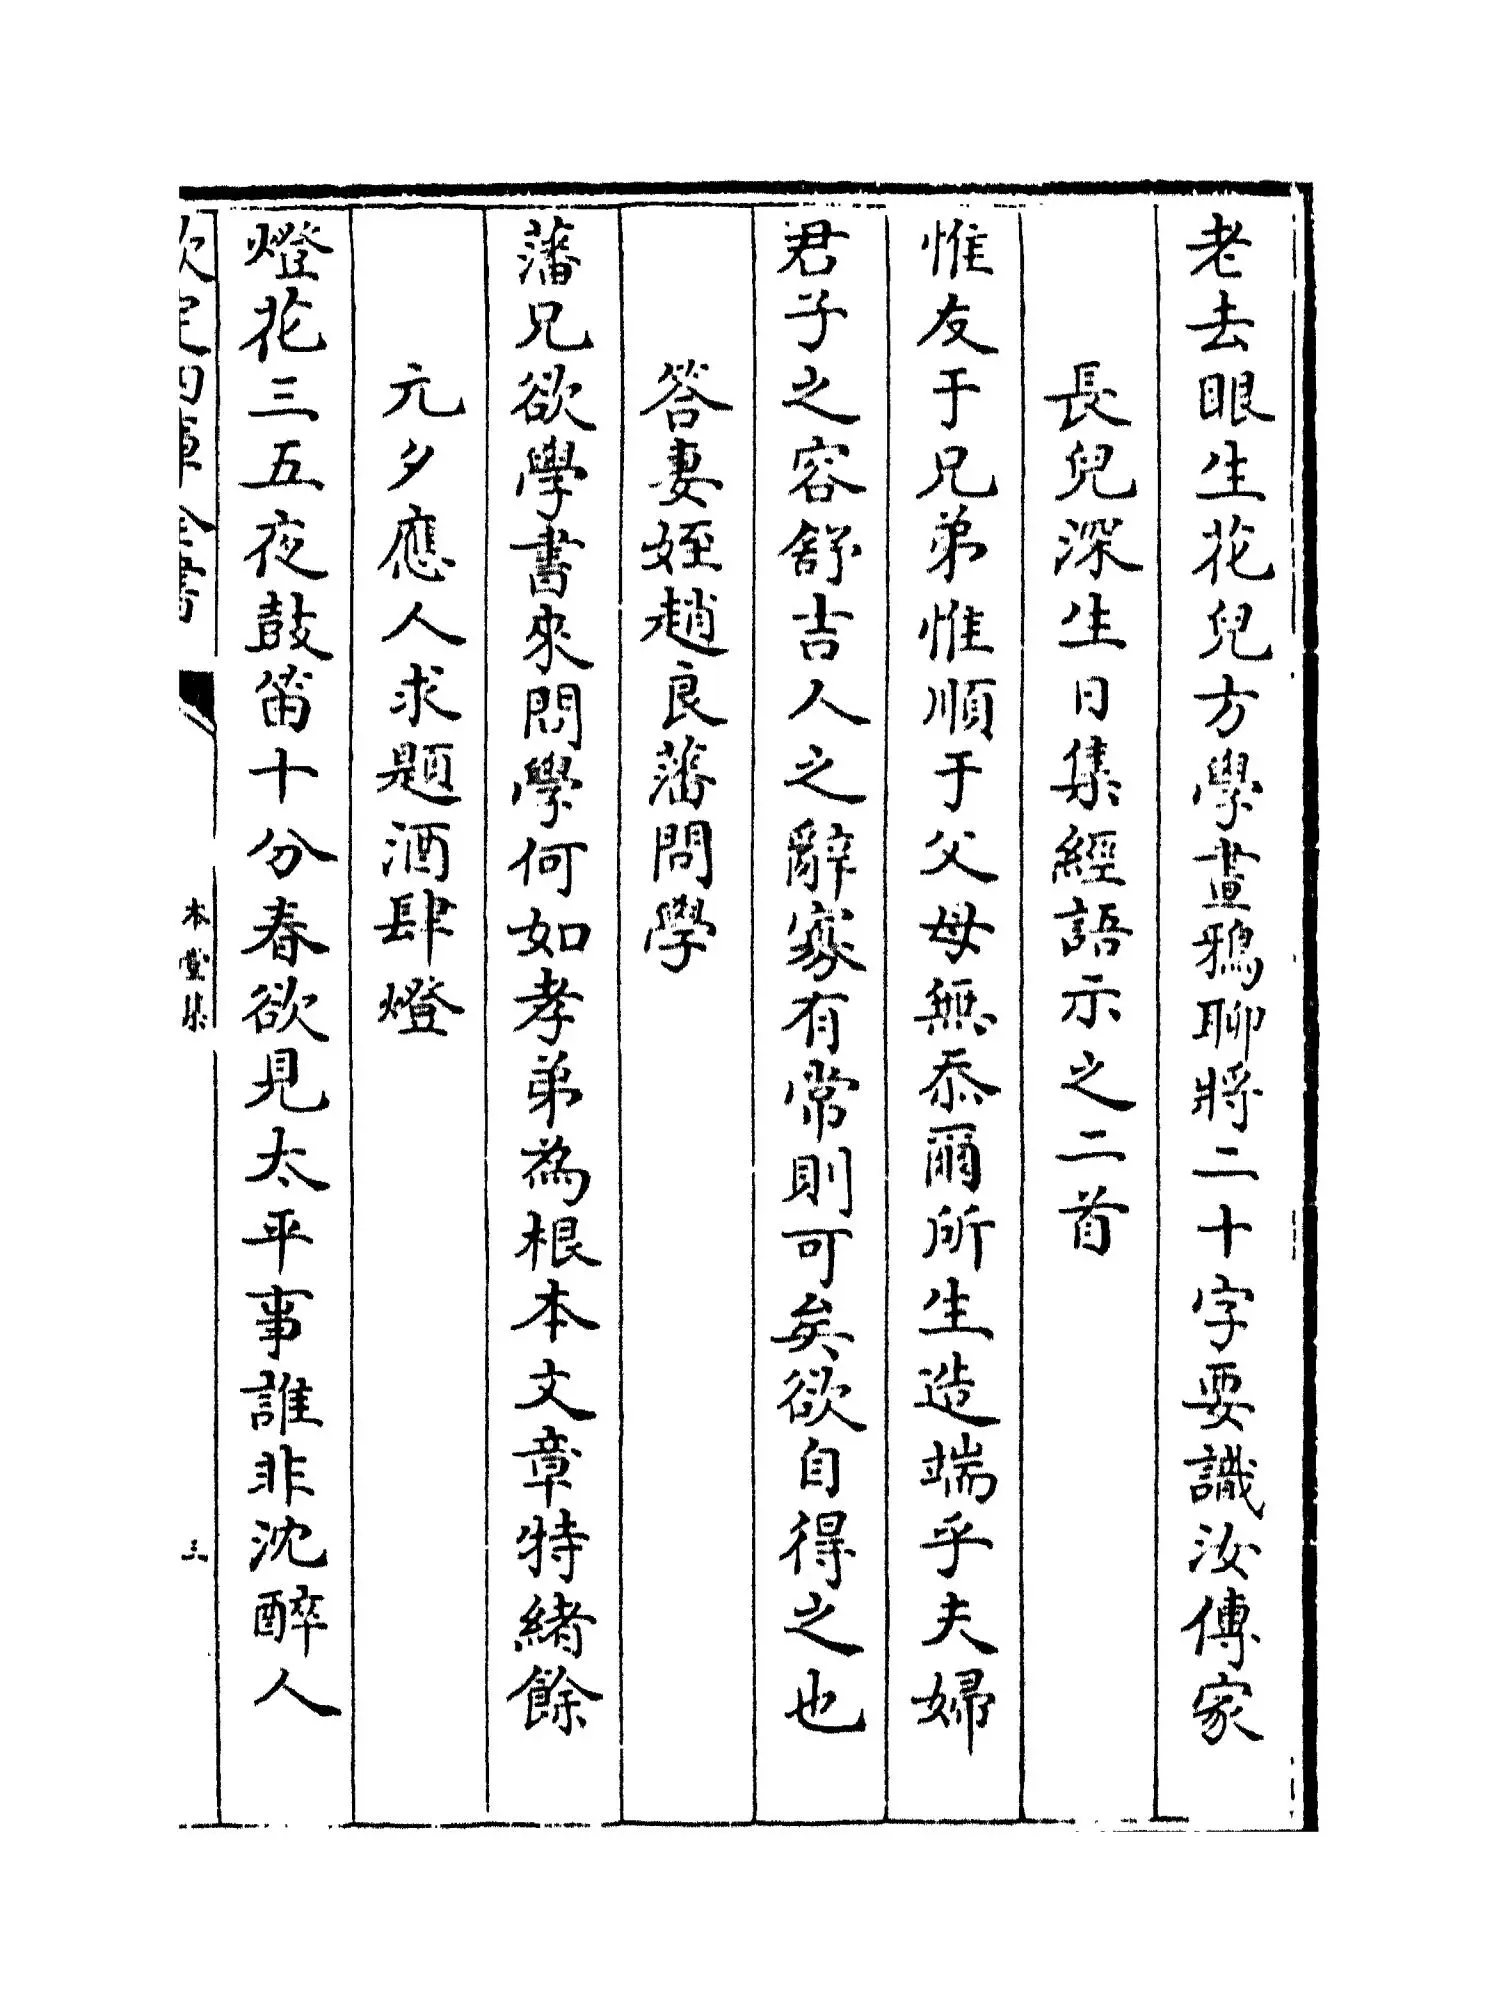 老去眼生花兒方學畫鴉聊將二十字要識汝傳家
長兒深生日集經語示之二首
惟友于兄弟惟順于父母無忝爾所生造端乎夫婦
君子之容舒吉人之辭寡有常則可矣欲自得之也
答妻姪趙良藩問學
藩兄欲學書來問學何如孝弟為根本文章特緒餘
元夕應人求題酒肆燈
燈花三五夜鼓笛十分春欲見太平事誰非沈醉人
欽定四庫全書
本堂集
三